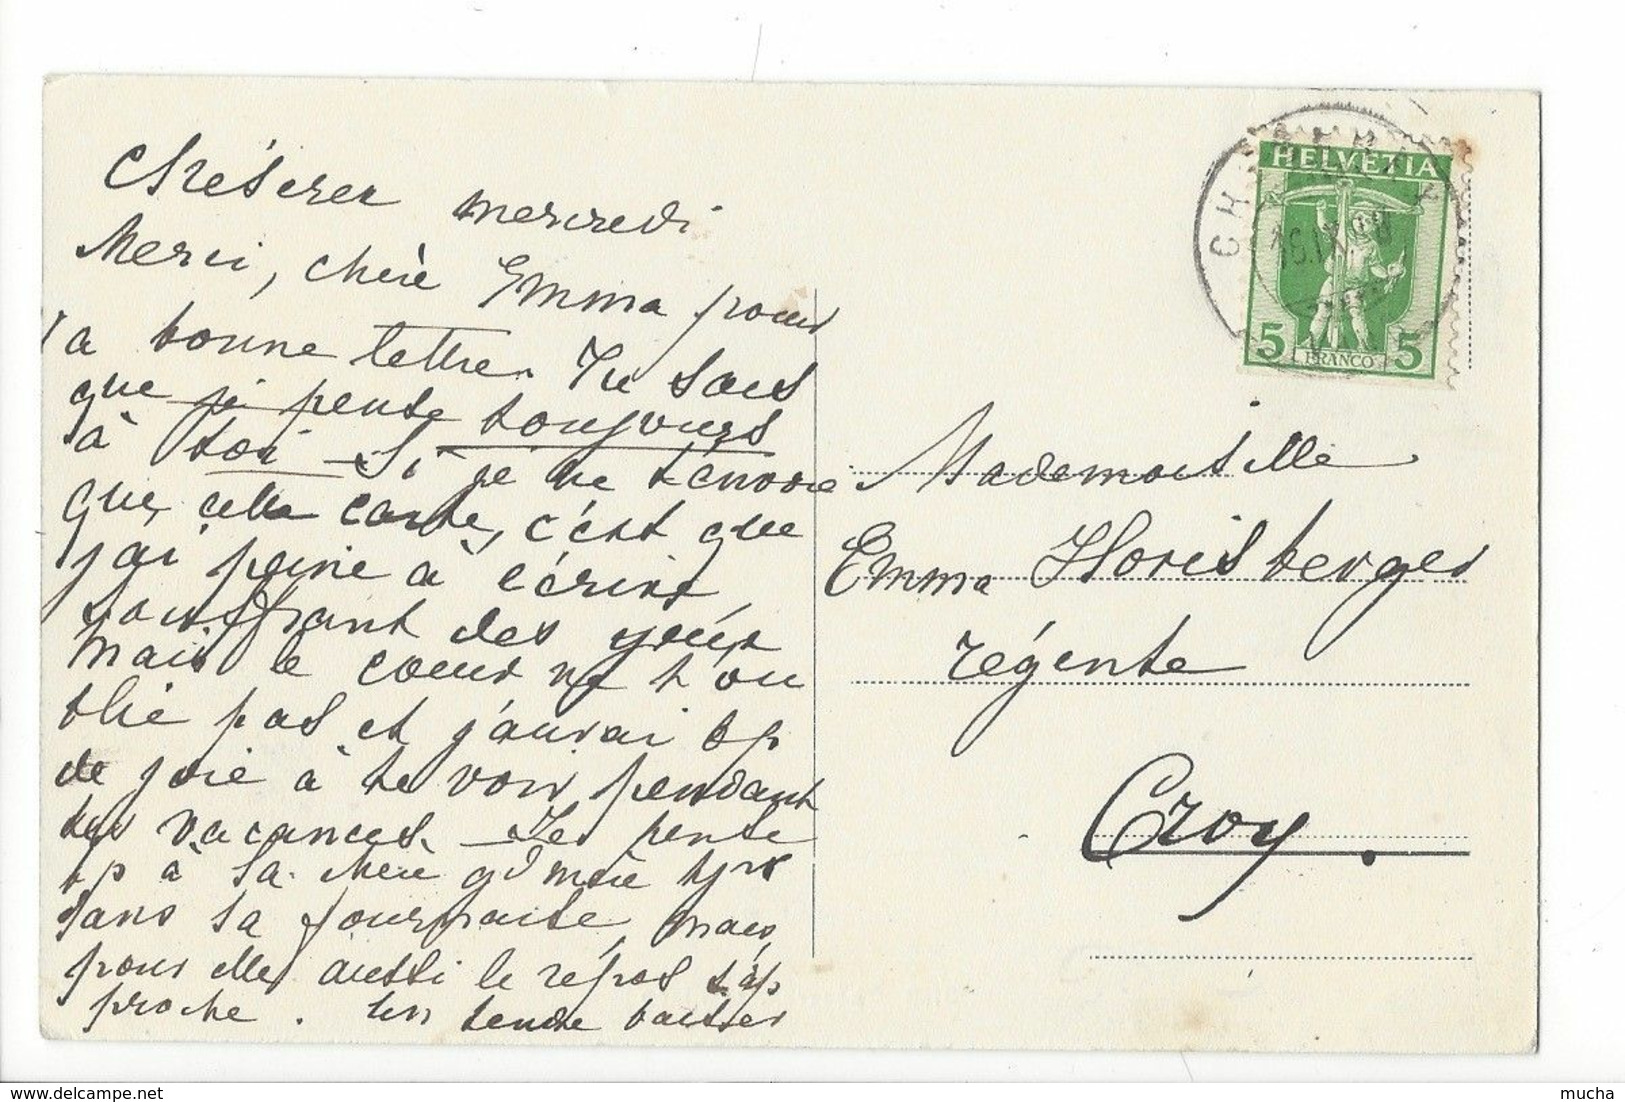 Chéserex mercredi
Merci, chère Emma pour
ta bonne lettre. Tu sais
que je pense toujours
à toi – Si je ne t'envoie
que cette carte, c'est que
j'ai peine à écrire,
souffrant des yeux
mais le coeur ne t'ou
blie pas et j'aurai bp
de joie à te voir pendant
les vacances. – Je pense
bp à ta chère gd mère tjrs
dans sa fournaise, mais
pour elle aussi le repos s'ap
proche. Un tendre baiser
HELVETIA
5 FRANCO 5
Mademoiselle
Emma Horisberger
régente
Croy.
mucha